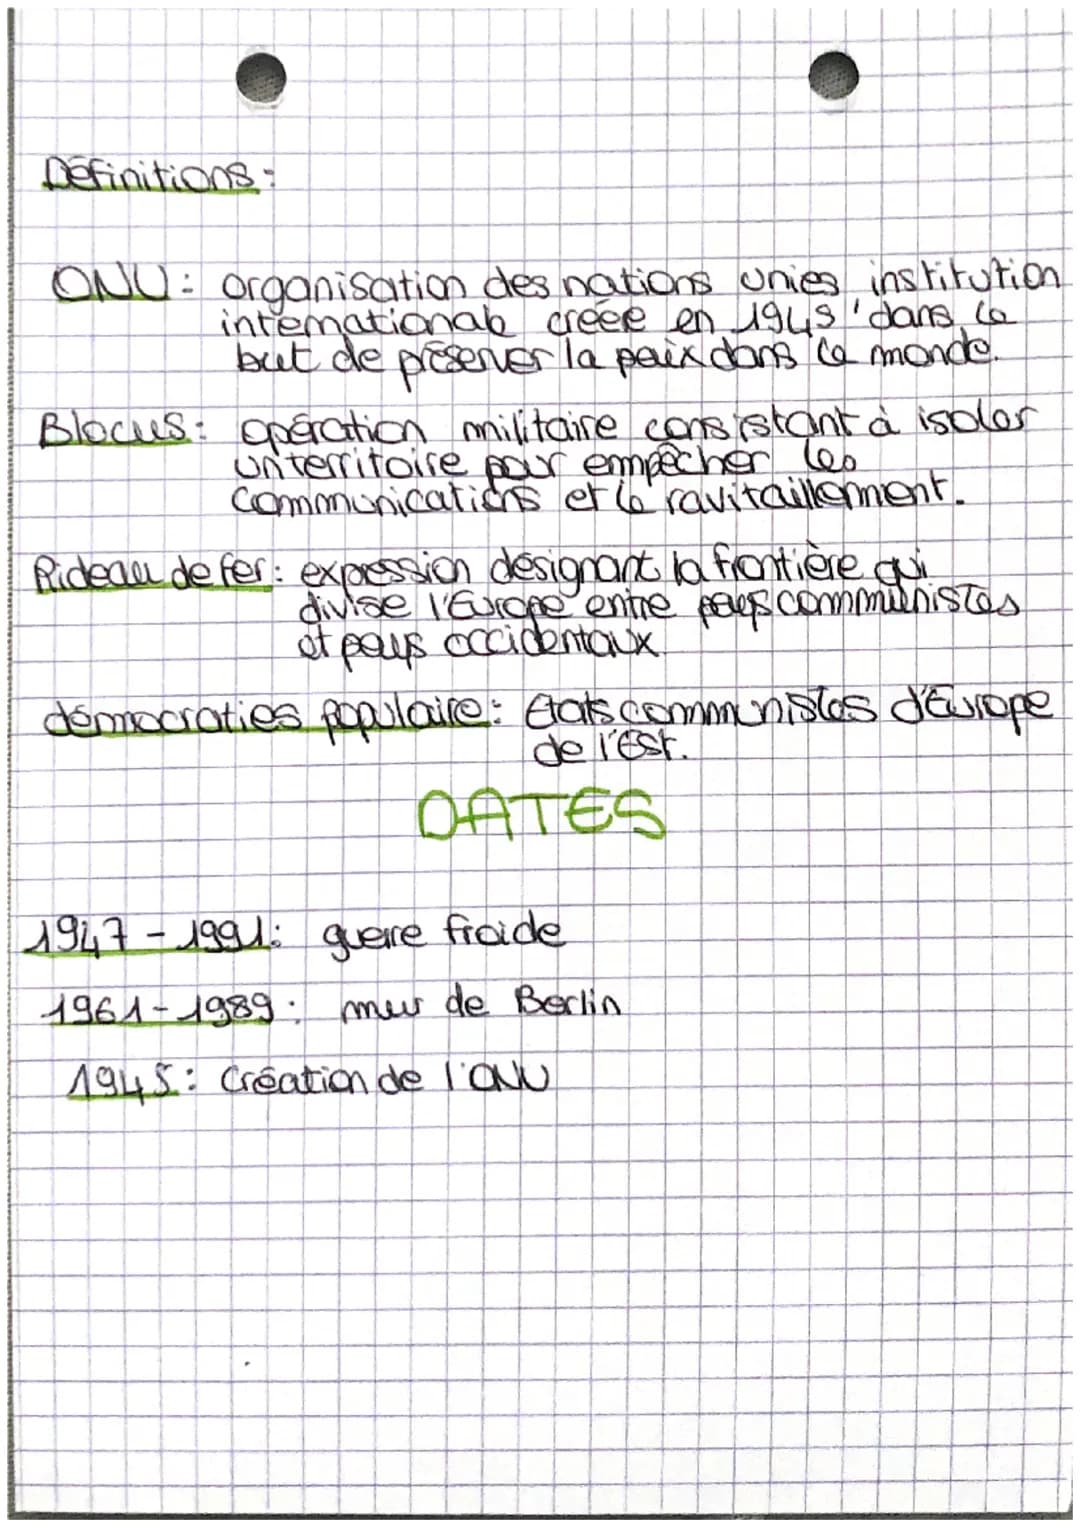 Définitions:
ONU: organisation des nations unies institution
internationale créée en 1945 dans le
but de préserver la paix dans le monde.
Blocus: opération militaire consistant à isoler
un territoire pour empêcher les
communications et le ravitaillement.
Rideau de fer: expression désignant la frontière qui
divise l'Europe entre pays communistes
et pays occidentaux.
démocraties populaire: États communistes d'Europe
de l'Est.
DATES
1947-1991: guerre froide
1961-1989: mur de Berlin
1945: Création de l'ONU